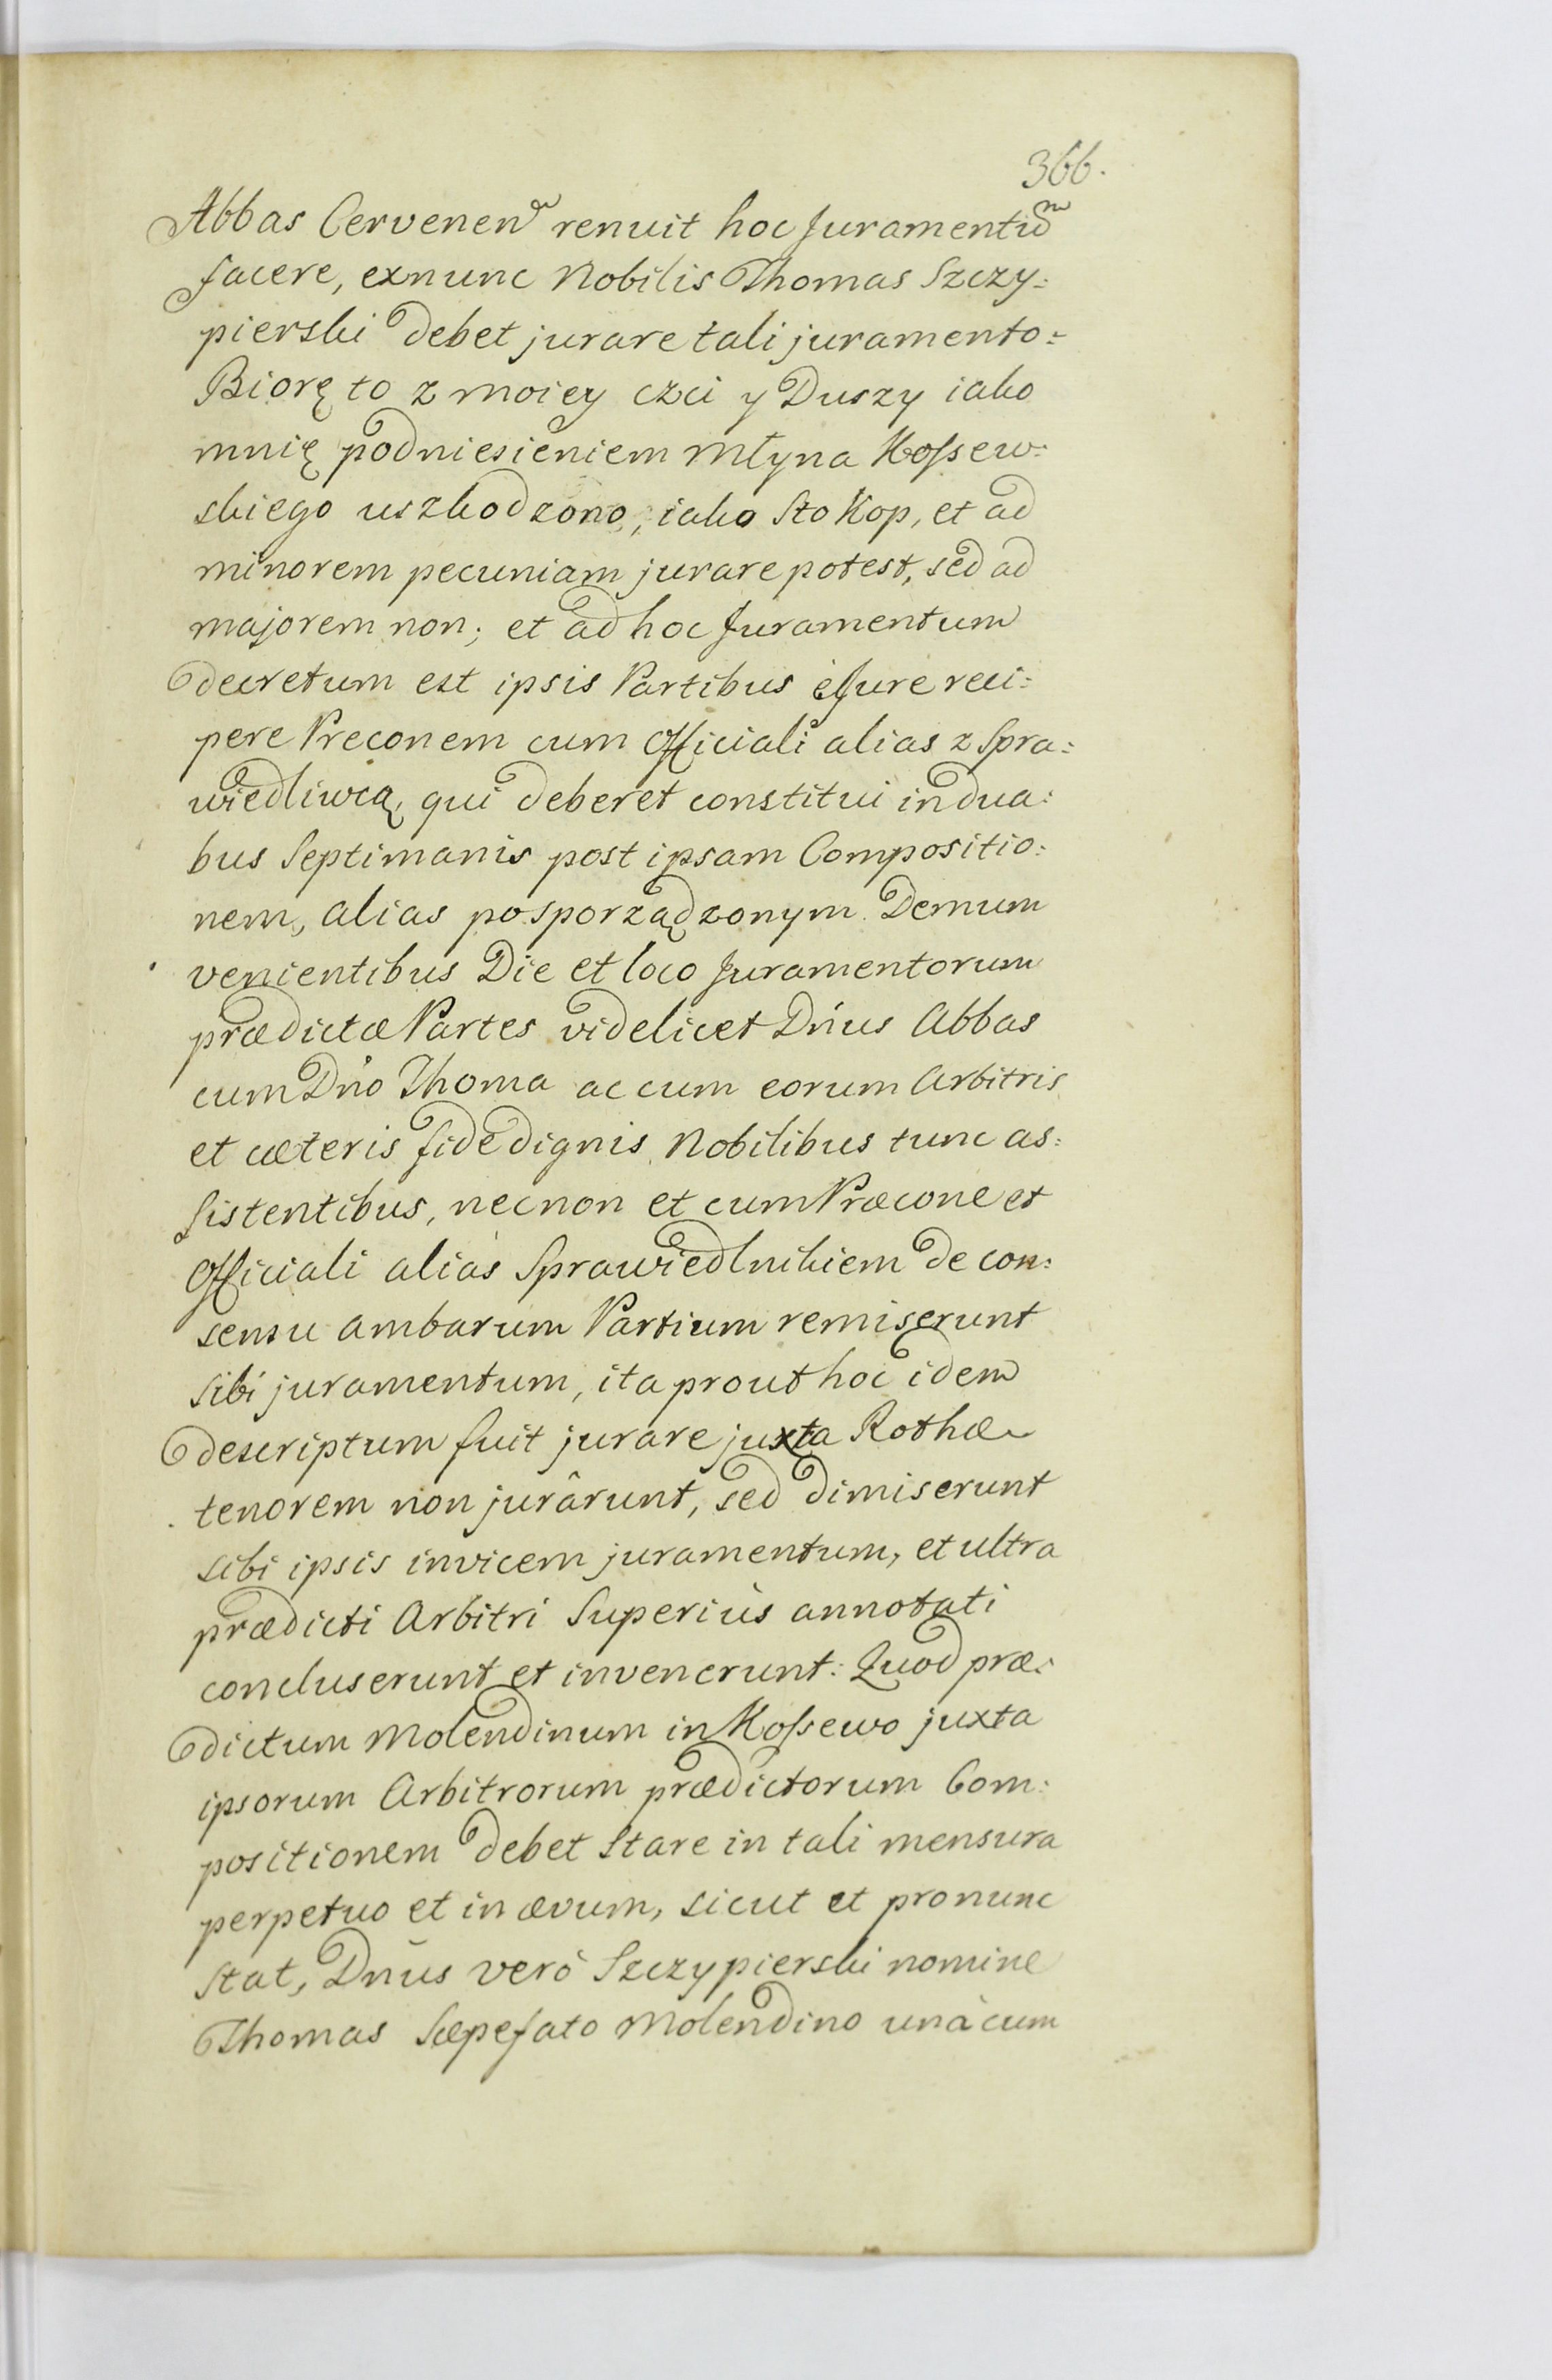 366.
Abbas Cervenen renuit hoc Juramentũ
facere, exnunc Nobilis Thomas Szczy:
pierski debet jurare tali juramento:
Biorę to z moiey czci y Duszy iako
mnię podniesieniem Młyna Kossew:
skiego uszkodzono, iako Sto Kop, et ad
minorem pecuniam jurare potest, sed ad
majorem non; et ad hoc Juramentum
decretum est ipsis Partibus è Jure reci:
pere Preconem cum Officiali alias z Spra:
wiedliwcą, qui deberet constitui in dua:
bus Septimanis post ipsam Compositio:
nem, alias posporządzonym. Demum
venientibus Die et loco Juramentorum
prædictæ Partes videlicet Dńus Abbas
cum Dńo Thoma ac cum eorum Arbitris
et cæteris fide dignis Nobilibus tunc as:
sistentibus, necnon et cum Præcone et
Officiali alias Sprawiedlnikiem de con:
sensu ambarum Partium remiserunt
sibi juramentum, ita prout hoc idem
descriptum fuit jurare juxta Rothæ
tenorem non jurârunt, sed dimiserunt
sibi ipsis invicem juramentum, et ultra
prædicti Arbitri Superiùs annotati
concluserunt et invenerunt: Quod præ:
dictum Molendinum in Kossewo juxta
ipsorum Arbitrorum prædictorum Com:
positionem debet Stare in tali mensura
perpetuo et in ævum, sicut et pronunc
Stat, Dnũs verò Szczypierski nomine
Thomas Sæpefato Molendino unà cum